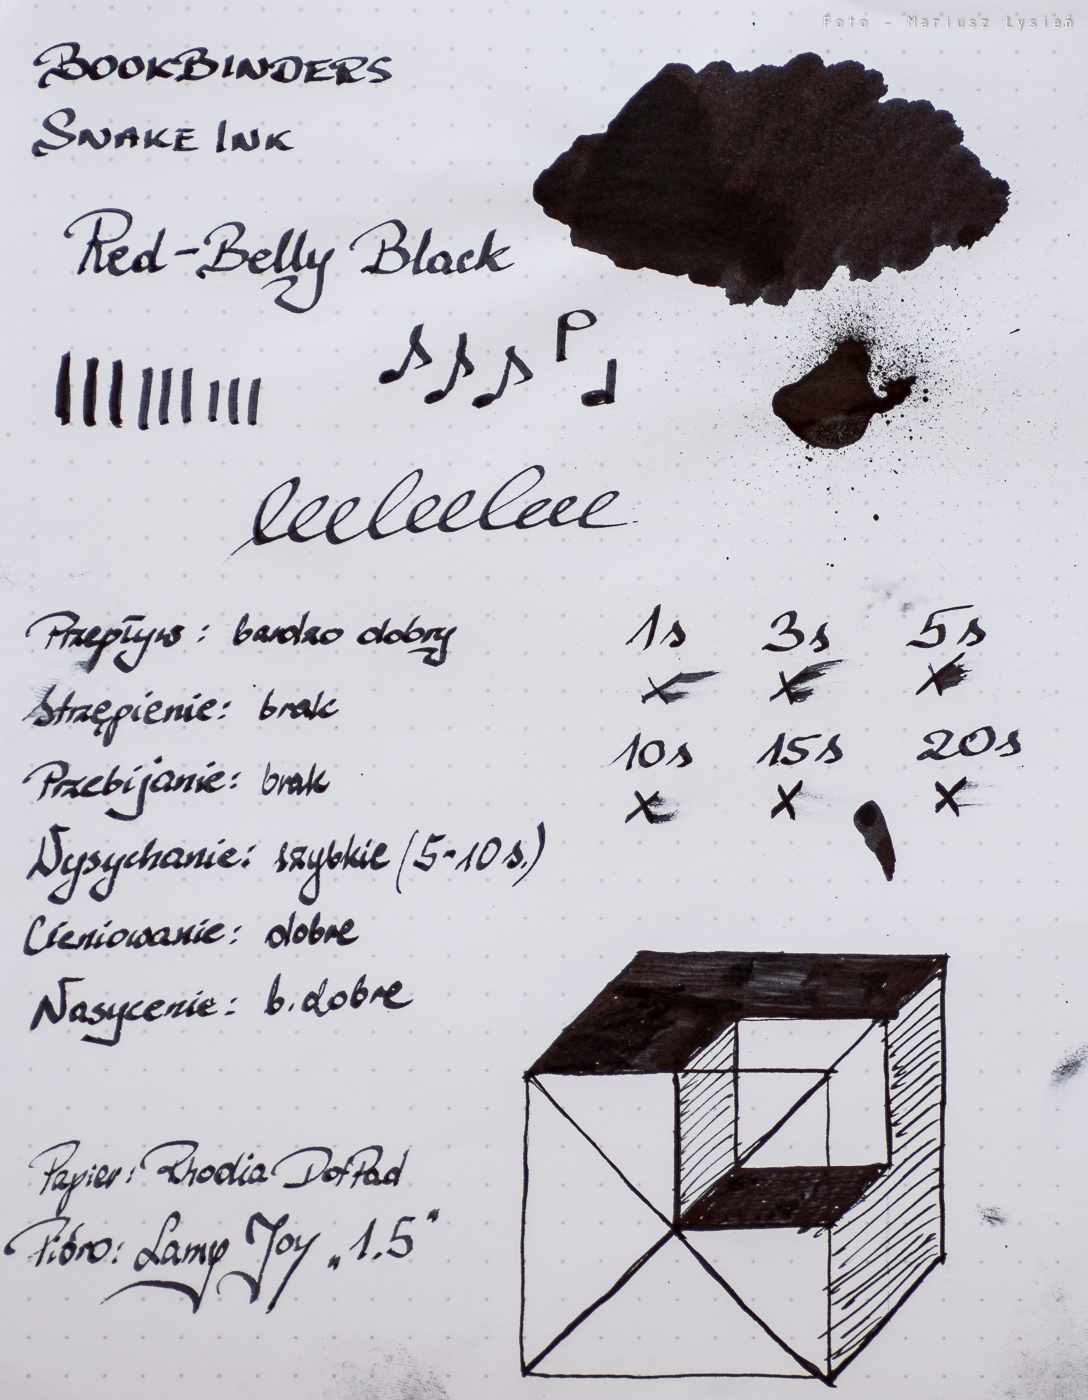 Foto - Mariusz Łysień
BOOKBINDERS
SNAKE INK
Red-Belly Black
Przepływ: bardzo dobry
Strzępienie: brak
Przebijanie: brak
Wysychanie: szybkie (5-10 s.)
Cieniowanie: dobre
Nasycenie: b. dobre
1s 3s 5s
x x x
10s 15s 20s
x x x
Papier: Rhodia DotPad
Pióro: Lamy Joy „1.5"